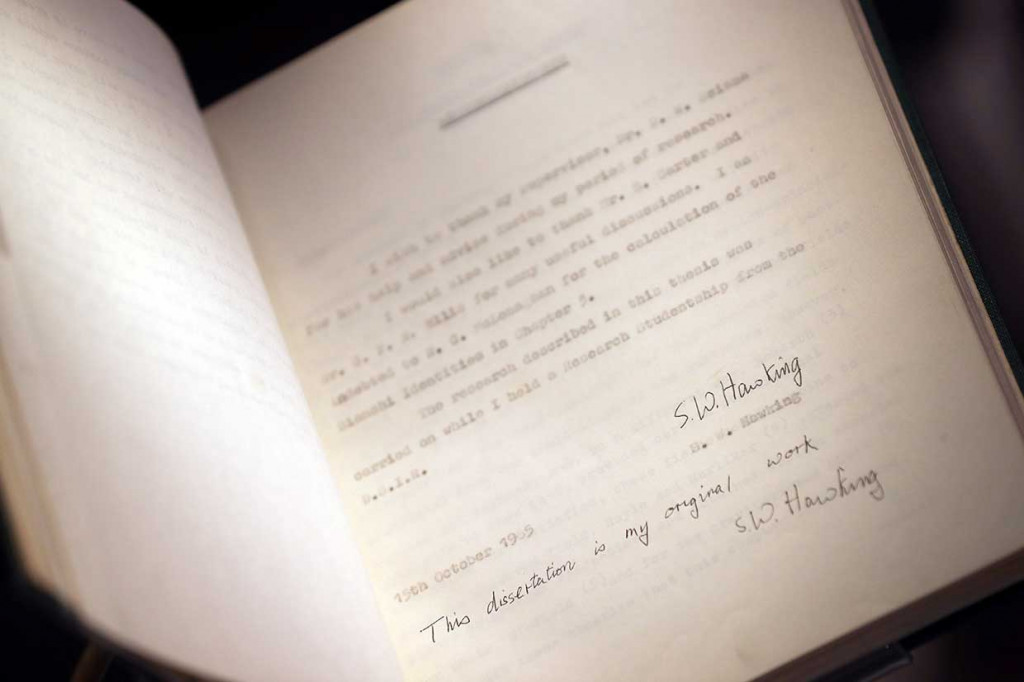 I wish to thank my supervisor, Dr. D. W. Sciama
for his help and advice during my period of research.
I would also like to thank Mr. B. Carter and
Mr. G. F. R. Ellis for many useful discussions. I am
indebted to R. G. McLenaghan for the calculation of the
Bianchi identities in Chapter 5.
The research described in this thesis was
carried on while I held a Research Studentship from the
D.S.I.R.
S.W. Hawking
S. W. Hawking
15th October 1965
This dissertation is my original work
S.W. Hawking